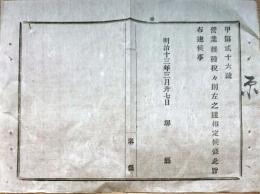 甲第貳十六號
營業雜種税々則左之通相定候條此旨
布達候事
明治十三年三月廿七日 堺縣
堺縣